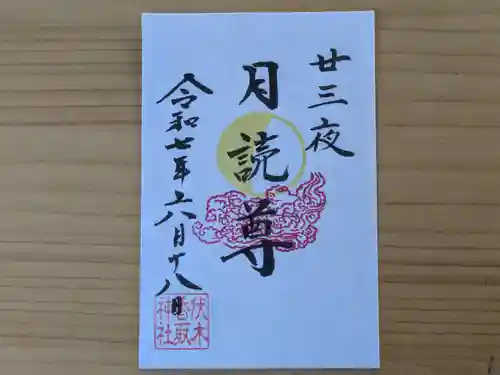 廿三夜
月読尊
令和七年六月十八日
伏木
香取
神社